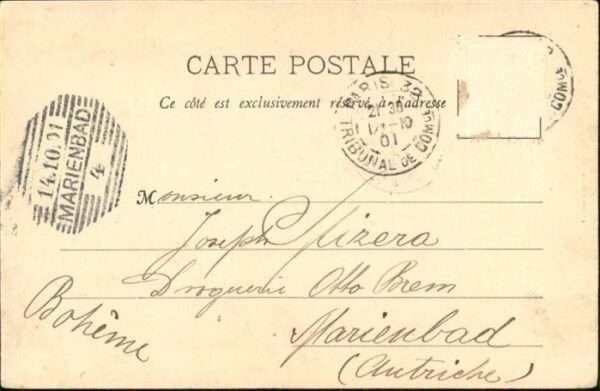 CARTE POSTALE
Ce côté est exclusivement réservé à l'adresse
PARIS 32
21 30
10
01
TRIBUNAL DE COMCE
COMCE
14.10.01
MARIENBAD
4
Monsieur
Joseph Mizera
Droguerie Otto Brem
Bohême
Marienbad
(Autriche)